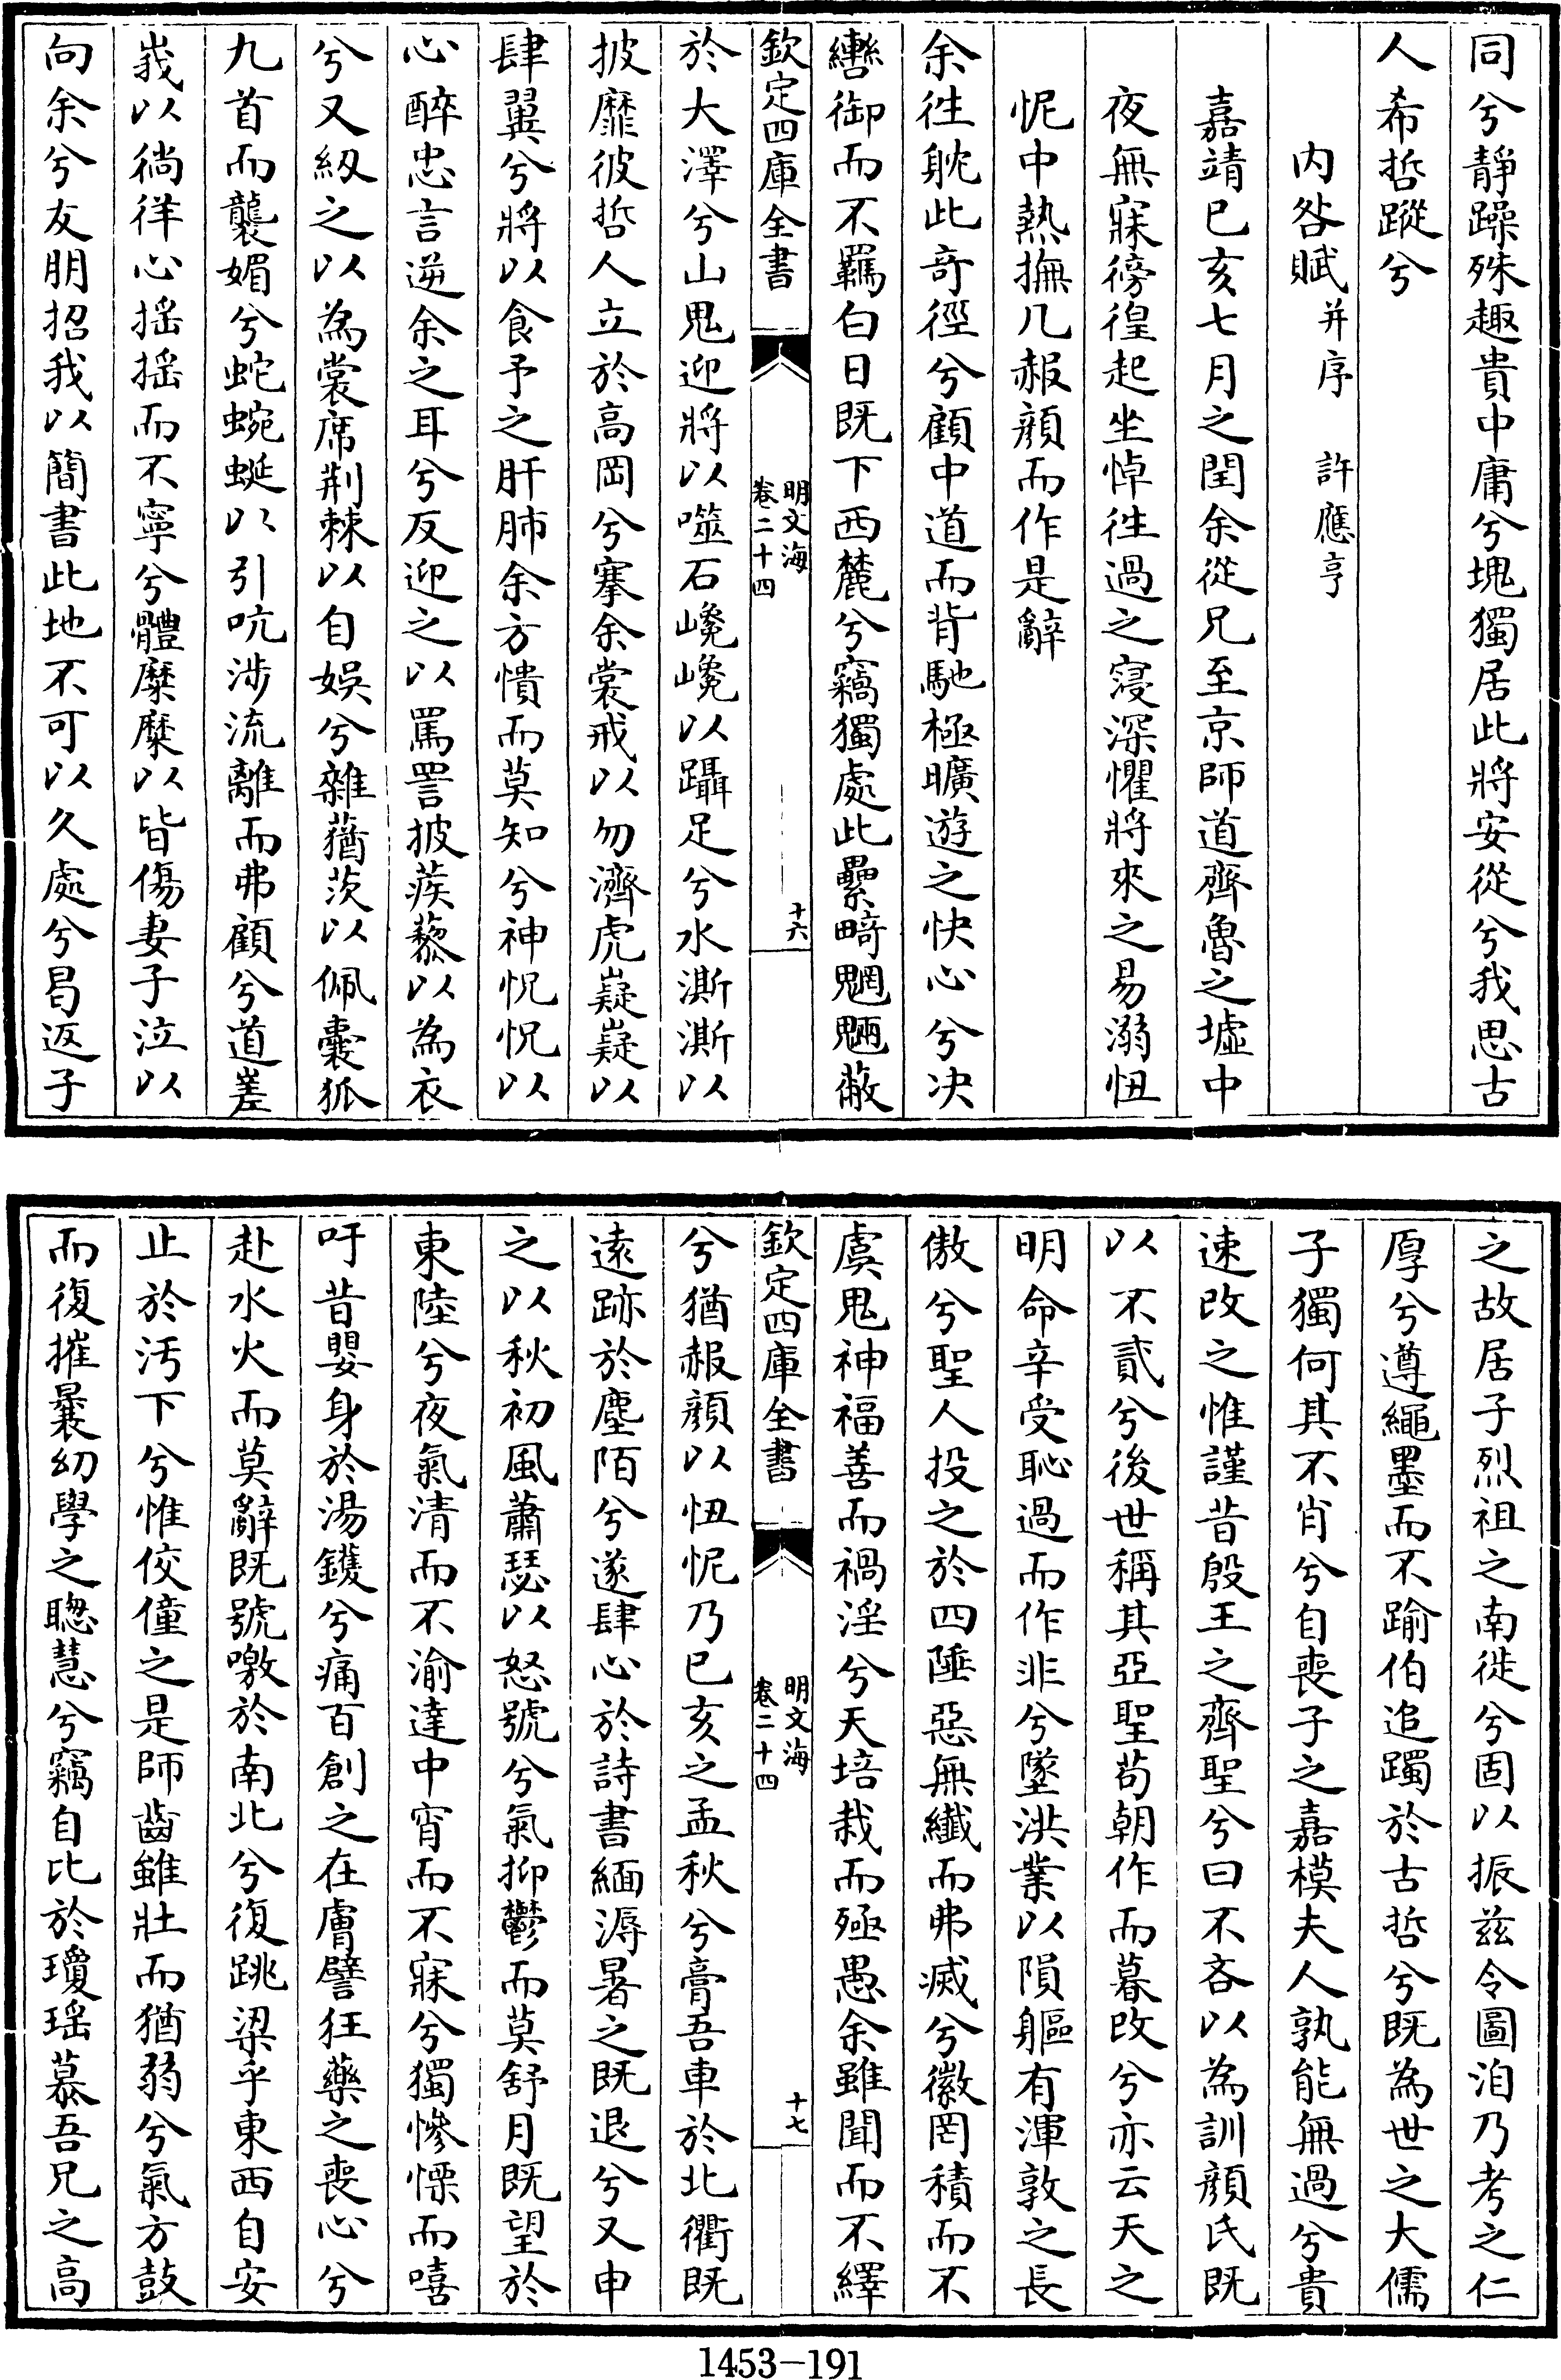 同兮靜躁殊趣貴中庸兮塊獨居此將安從兮我思古
人希哲蹤兮
内咎賦并序 許應亨
嘉靖已亥七月之閏余從兄至京師道齊魯之墟中
夜無寐徬徨起坐悼徃過之寖深懼將來之易溺忸
怩中熱撫几赧顔而作是辭
余徃躭此奇徑兮顧中道而背馳極曠遊之快心兮决
轡御而不羈白日既下西麓兮竊獨處此纍畸魍魎蔽
欽定四庫全書
明文海
卷二十四
十六
於大澤兮山鬼迎將以噬石巉巉以躡足兮水澌澌以
披靡彼哲人立於高岡兮搴余裳戒以勿濟虎嶷嶷以
肆翼兮將以食予之肝肺余方憒而莫知兮神怳怳以
心醉忠言逆余之耳兮反迎之以罵詈披蒺藜以為衣
兮又紉之以為裳席荆棘以自娱兮雜蕕茨以佩囊狐
九首而襲媚兮蛇蜿蜒以引吭涉流離而弗顧兮道嵳
峩以徜徉心揺揺而不寧兮體糜糜以皆傷妻子泣以
向余兮友朋招我以簡書此地不可以久處兮曷返子
之故居子烈祖之南徙兮固以振兹令圖洎乃考之仁
厚兮遵繩墨而不踰伯追躅於古哲兮既為世之大儒
子獨何其不肖兮自喪子之嘉模夫人孰能無過兮貴
速改之惟謹昔殷王之齊聖兮曰不吝以為訓顔氏既
以不貳兮後世稱其亞聖苟朝作而暮改兮亦云天之
明命辛受恥過而作非兮墜洪業以隕軀有渾敦之長
傲兮聖人投之於四陲惡無纎而弗滅兮徽罔積而不
虞鬼神福善而禍淫兮天培栽而殛愚余雖聞而不繹
欽定四庫全書
明文海
卷二十四
十七
兮猶赧顔以忸怩乃已亥之孟秋兮膏吾車於北衢既
遠跡於塵陌兮遂肆心於詩書緬溽暑之既退兮又申
之以秋初風蕭瑟以怒號兮氣抑鬱而莫舒月既望於
東陸兮夜氣清而不渝達中宵而不寐兮獨慘慄而嘻
吁昔嬰身於湯鑊兮痛百創之在膚譬狂藥之喪心兮
赴水火而莫辭既號噭於南北兮復跳梁乎東西自安
止於汚下兮惟佼僮之是師齒雖壯而猶弱兮氣方鼓
而復摧曩幼學之聦慧兮竊自比於瓊瑶慕吾兄之高
1453-191